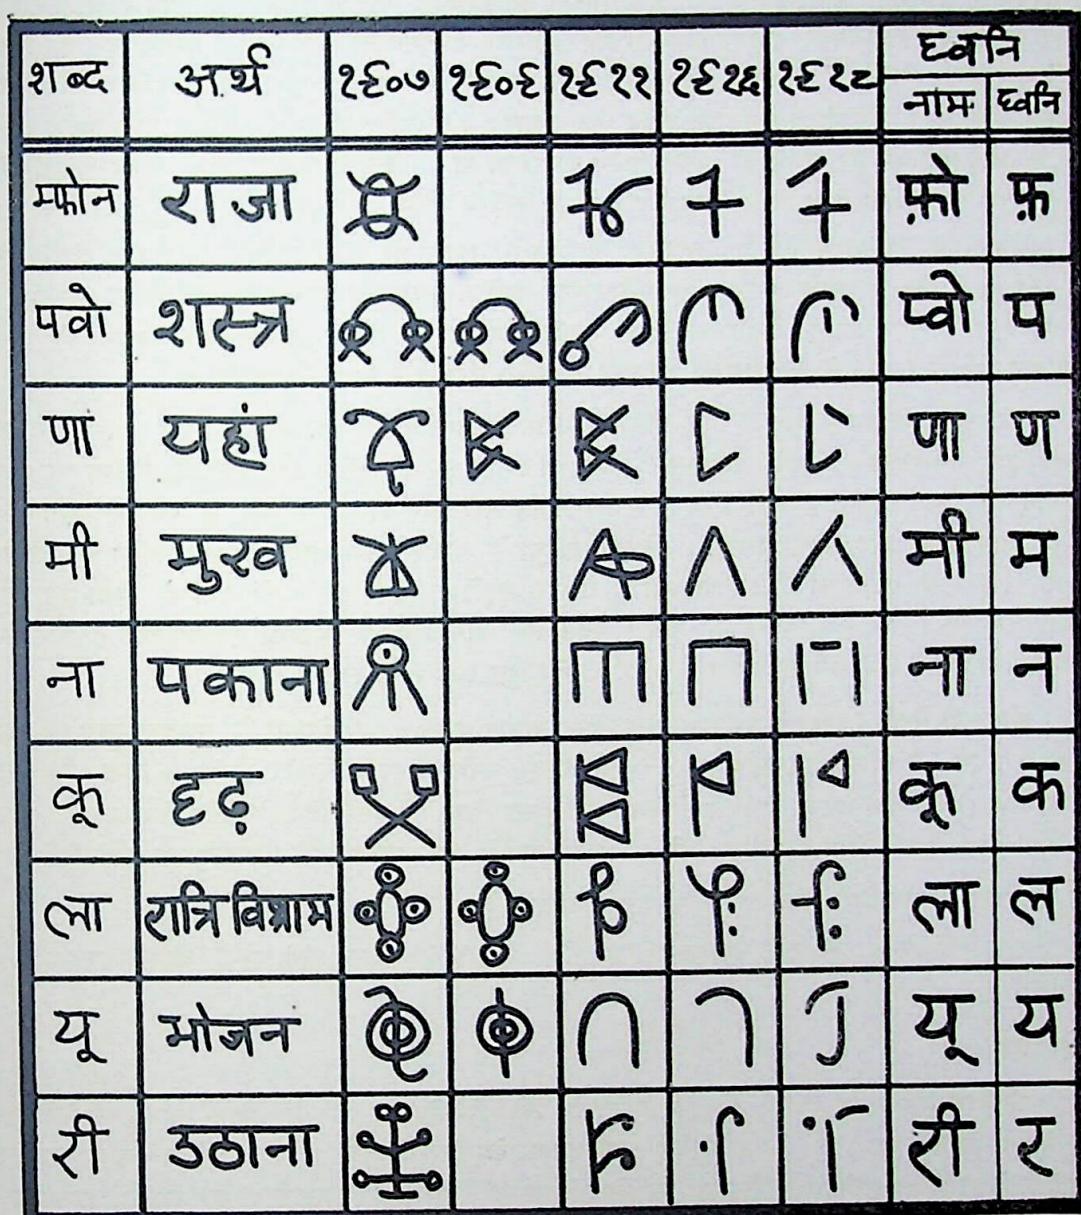 शब्द अर्थ १९०७ १९०९ १९११ १९१६ १९१८ ध्वनि
नाम ध्वनि
म्फोन राजा फ़ो फ़
पवो शस्त्र प्वो प
णा यहां णा ण
मी मुख मी म
ना पकाना ना न
कू दृढ़ कू क
ला रात्रि विश्राम ला ल
यू भोजन यू य
री उठाना री र